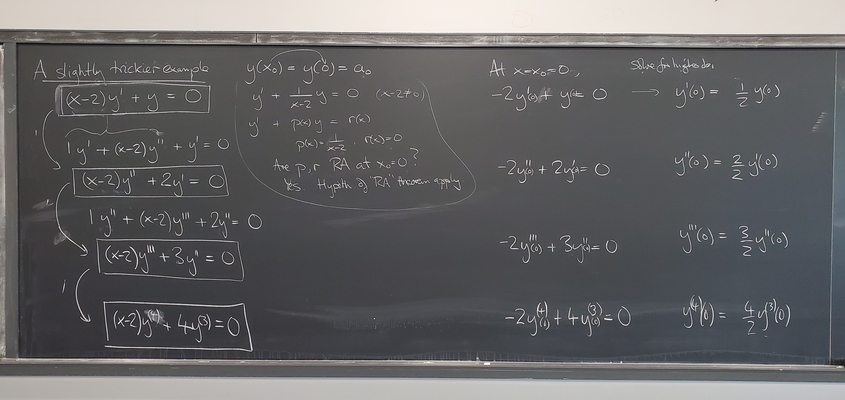 A slightly trickier example
(x-2)y' + y = 0
1y' + (x-2)y'' + y' = 0
(x-2)y'' + 2y' = 0
1y'' + (x-2)y''' + 2y'' = 0
(x-2)y''' + 3y'' = 0
(x-2)y⁽⁴⁾ + 4y⁽³⁾ = 0
y(x₀) = y(0) = a₀
y' + 1/(x-2) y = 0 (x-2≠0)
y' + p(x)y = r(x)
p(x) = 1/(x-2), r(x)=0
Are p, r RA at x₀=0?
Yes Hypoth of "RA" theorem apply
At x=x₀=0,
-2y'(0) + y(0) = 0 → y'(0) = 1/2 y(0)
-2y''(0) + 2y'(0) = 0 y''(0) = 2/2 y'(0)
-2y'''(0) + 3y''(0) = 0 y'''(0) = 3/2 y''(0)
-2y⁽⁴⁾(0) + 4y⁽³⁾(0) = 0 y⁽⁴⁾(0) = 4/2 y⁽³⁾(0)
Solve for